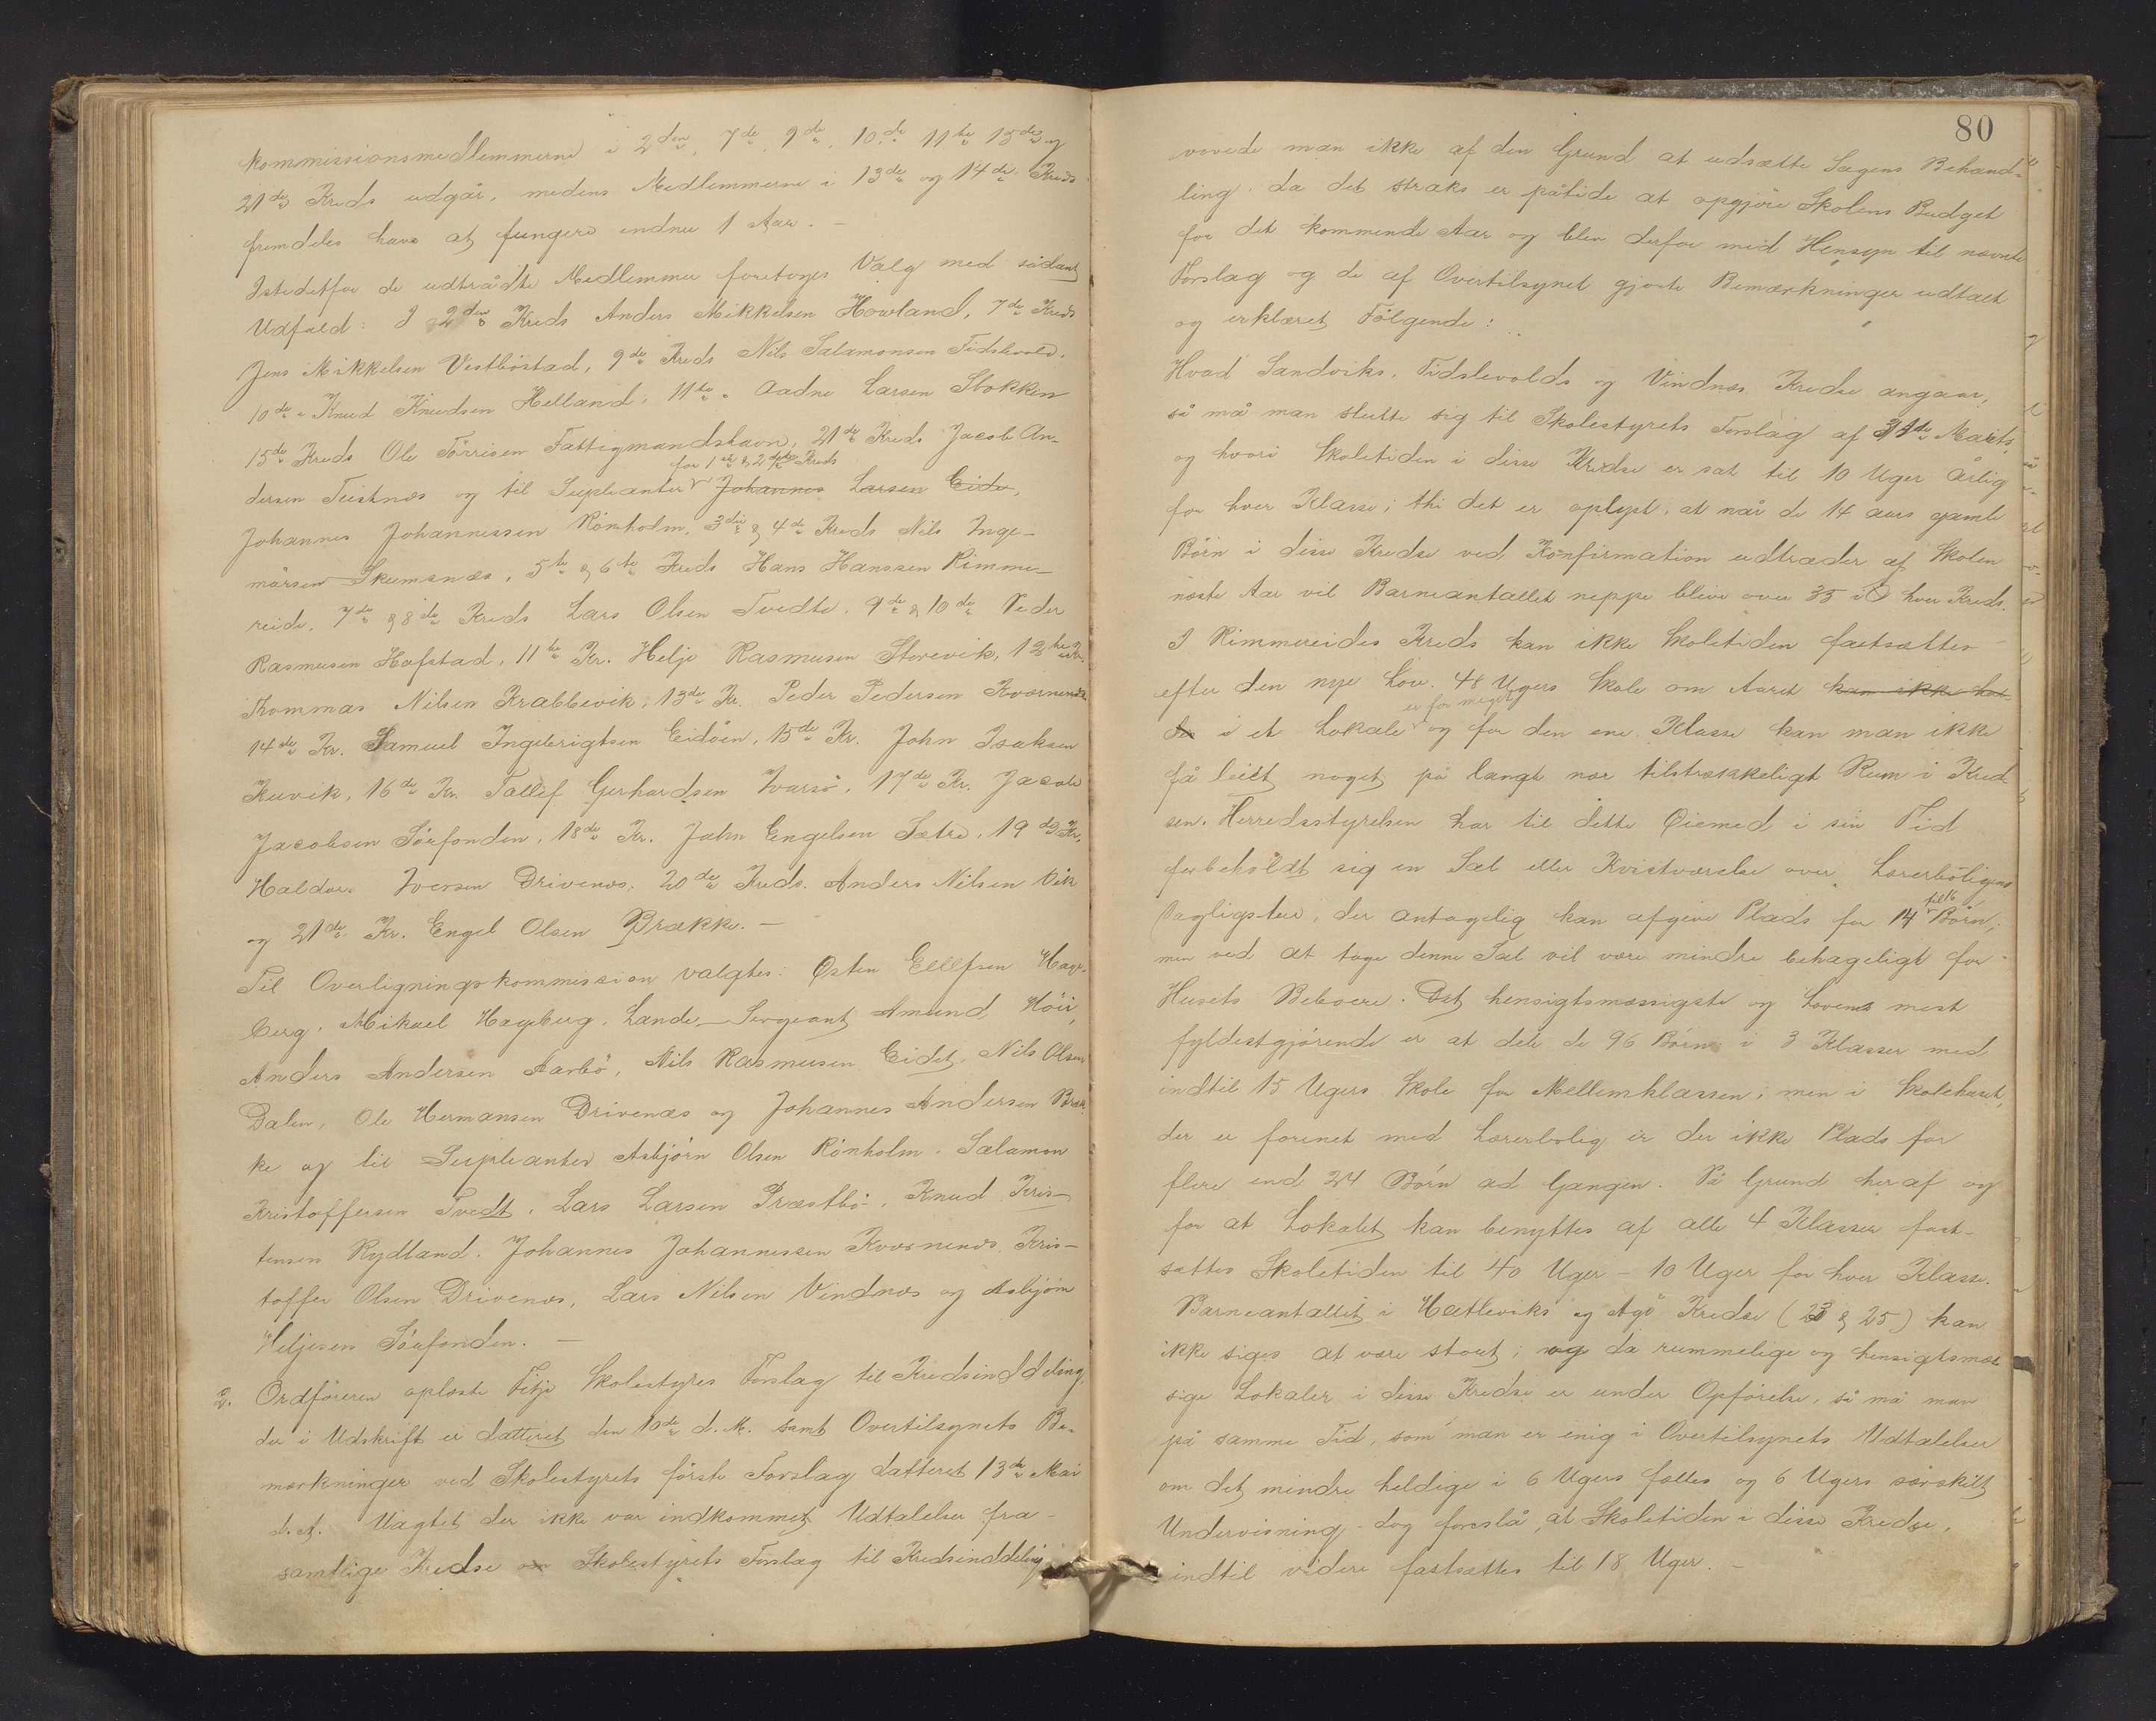 kommissionsmedlemmerne i 2den, 7de, 9de, 10de 11te 15de og
21de Kreds udgår, medens Medlemmerne i 13de og 14de Kreds
fremdeles have at fungere endnu 1 Aar. —
Istedetfor de udtrådte Medlemmer foretoges Valg med sådant
Udfald: I 2den Kreds Anders Mikkelsen Howland, 7de Kreds
Jens Mikkelsen Vestbøstad, 9de Kreds Nils Salamonsen Tidslevold,
10de " Knud Knudsen Helland, 11te " Aadne Larsen Stokken
15de Kreds Ole Törrisen Fattigmandshavn, 21de Kreds Jacob An-
for 1ste & 2den Kreds
dersen Teistnæs og til Supleanter Johannes Larsen Eide,
Johannes Johannessen Rönholm, 3die & 4de Kreds Nils Inge-
mårsen Skumsnæs, 5te & 6te Kreds Hans Hanssen Rimme-
reide, 7de & 8de Kreds Lars Olsen Tvedte, 9de & 10de Peder
Rasmusen Hafstad, 11te Kr. Helje Rasmusen Storevik, 12te Kr.
Tommas Nilsen Krabbevik, 13de Kr. Peder Pedersen Kværnenæs
14de Kr. Samuel Ingebrigtsen Eidöen, 15de Kr. John Isaksen
Kuvik, 16de Kr. Tollif Gerhardsen Ivarsö, 17de Kr. Jacob
Jacobsen Sörfonden, 18de Kr. John Engelsen Sætre, 19de Kr.
Haldor Iversen Drivenæs, 20de Kreds. Anders Nilsen Vik
og 21de Kr. Engel Olsen Brække. —
Til Overligningskommission valgtes: Østen Ellefsen Hage-
berg, Mikael Hageberg, Lands-Sergeant Amund Höie,
Anders Andersen Aarbö, Nils Rasmusen Eidet, Nils Olsen
Dalen, Ole Hermansen Drivenæs og Johannes Andersen Bræk-
ke og til Supleanter Asbjörn Olsen Rönholm, Salamon
Kristoffersen Tvedt, Lars Larsen Præstbö, Knud Kris-
tensen Rydland, Johannes Johannessen Kværnenæs, Kris-
toffer Olsen Drivenæs, Lars Nilsen Vindnæs og Asbjörn
Heljesen Sörfonden. —
2. Ordföreren oplæste Fitje Skolestyres Forslag til Kredsinddeling,
der i Udskrift er datteret den 10de d.M. samt Overtilsynets Be-
mærkninger ved Skolestyrets förste Forslag datteret 13de Mai
d.A. Uagtet der ikke var indkommet Udtalelser fra
samtlige Kredse om Skolestyrets Forslag til Kredsinddeling
80
vovede man ikke af den Grund at udsætte Sagens Behand-
ling, da det straks er påtide at opgjöre Skolens Budget
for det kommende Aar og blev derfor med Hensyn til nævnte
Forslag og de af Overtilsynet gjorte Bemærkninger udtalt
og erklæret Fölgende:
Hvad Sandviks, Tidslevolds og Vindnæs Kredse angaar,
så må man slutte sig til Skolestyrets Forslag af 31te Marts,
og hvori Skoletiden i disse Kredse er sat til 10 Uger årlig
for hver Klasse; thi det er oplyst, at når de 14 aars gamle
Börn i disse Kredse ved Konfirmation udtræder af Skolen
næste Aar vil Barneantallet neppe blive over 35 i hver Kreds.
I Rimmereides Kreds kan ikke Skoletiden fastsættes
efter den nye Lov. 48 Ugers Skole om Aaret kan ikke hol-
er for meget
des i et Lokale og for den ene Klasse kan man ikke
få leiet noget på langt nær tilstrækkeligt Rum i Kred-
sen. Herredsstyrelsen har til dette Öiemed i sin Tid
forbeholdt sig en Sal eller Kvistværelse over Lærerboligens
til 16
Dagligstue, der antagelig kan afgive Plads for 14 Börn,
men ved at tage denne Sal vil være mindre behageligt for
Husets Beboere. Det hensigtsmæssigste og Lovens mest
fyldestgjörende er at dele de 96 Börn i 3 Klasser med
indtil 15 Ugers Skole for Mellemklassen, men i Skolehuset,
der er forenet med Lærerbolig er der ikke Plads for
flere end 24 Börn ad Gangen. På Grund heraf og
for at Lokalet kan benyttes af alle 4 Klasser fast-
sættes Skoletiden til 40 Uger – 10 Uger for hver Klasse.
Barneantallet i Hatleviks og Agö Kredse (23 & 25) kan
ikke siges at være stort; og da rummelige og hensigtsmæs-
sige Lokaler i disse Kredse er under Opförelse, så må man
på samme Tid, som man er enig i Overtilsynets Udtalelser
om det mindre heldige i 6 Ugers fælles og 6 Ugers særskilt
Undervisning – dog foreslå, at Skoletiden i disse Kredse,
indtil videre fastsættes til 18 Uger. —